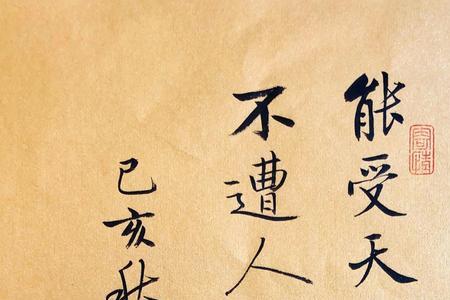 能受天
不遭人
己亥秋